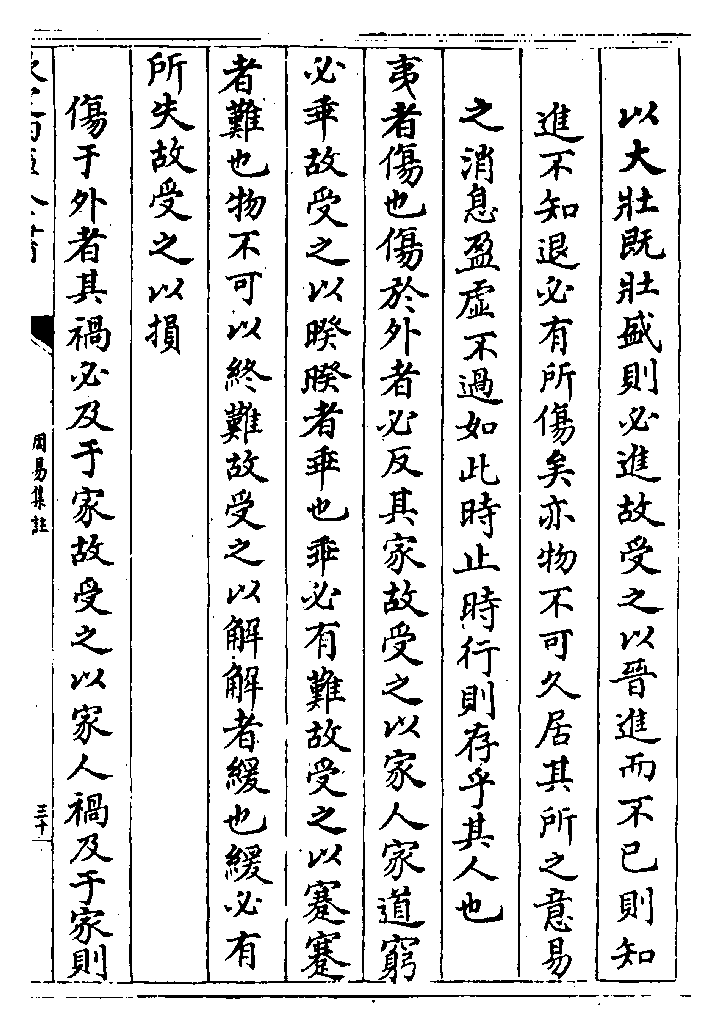 以大壯既壯盛則必進故受之以晉進而不已則知
進不知退必有所傷矣亦物不可久居其所之意易
之消息盈虛不過如此時止時行則存乎其人也
夷者傷也傷於外者必反其家故受之以家人家道窮
必乖故受之以睽睽者乖也乖必有難故受之以蹇蹇
者難也物不可以終難故受之以解解者緩也緩必有
所失故受之以損
傷于外者其禍必及于家故受之以家人禍及于家則
周易集註
三十一